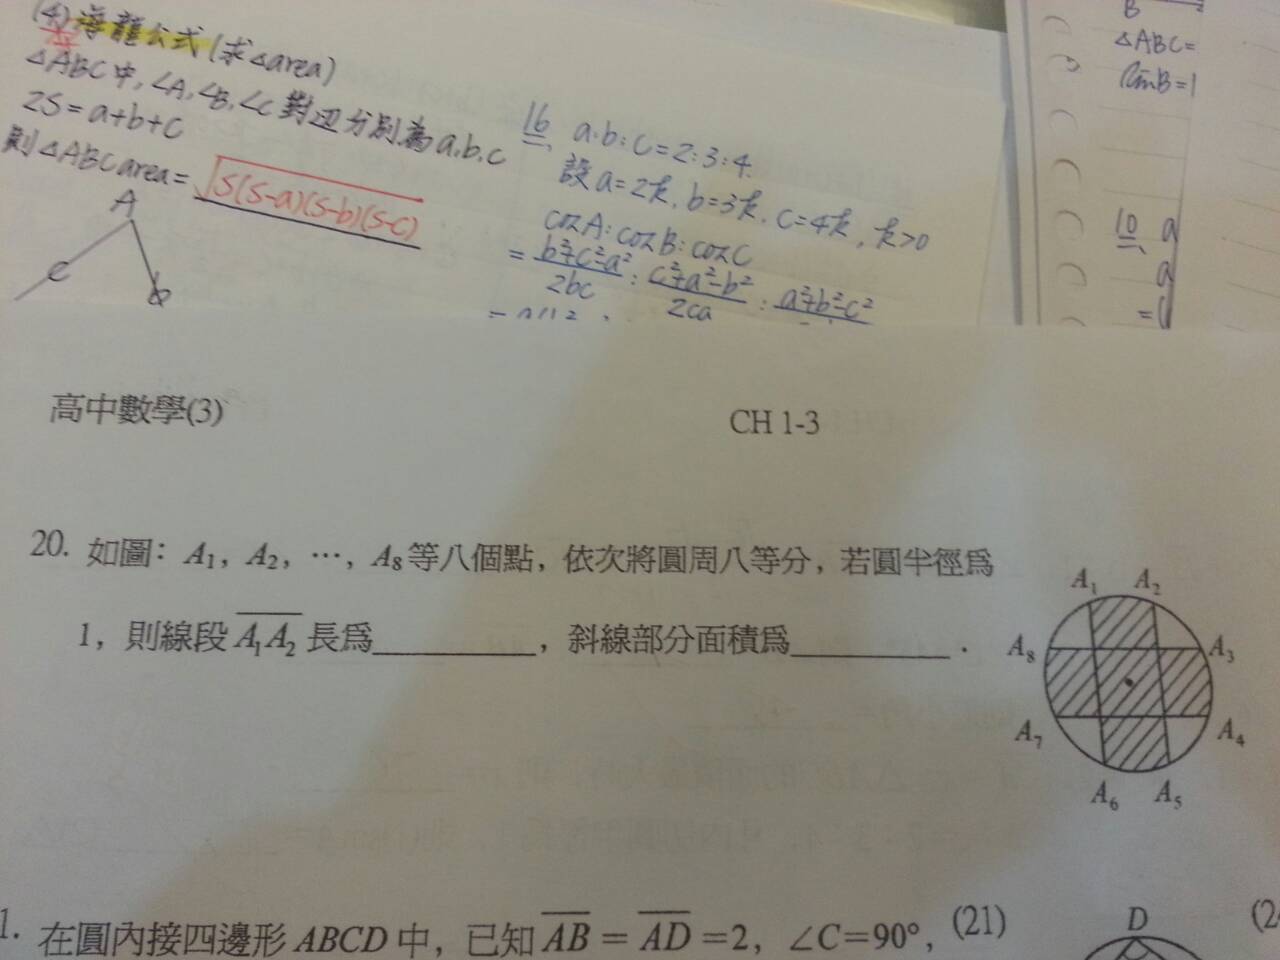 (4) 海龍公式(求△area)
△ABC中,∠A,∠B,∠C對边分別為a,b,c
2S=a+b+c
則△ABC area=√S(S-a)(S-b)(S-c)
A
C
b
16 a:b:c=2:3:4.
設a=2k,b=3k,c=4k,k>0
cosA:cosB:cosC
= b²+c²-a²/2bc : c²+a²-b²/2ca : a²+b²-c²
B
△ABC=
sinB=1
10 a
a
=
高中數學(3)
CH 1-3
20. 如圖:A₁,A₂,⋯,A₈等八個點,依次將圓周八等分,若圓半徑爲
1,則線段A₁A₂長爲__________,斜線部分面積爲__________.
A₁ A₂
A₈ A₃
A₇ A₄
A₆ A₅
1. 在圓內接四邊形ABCD中,已知AB=AD=2,∠C=90°,
(21)
D